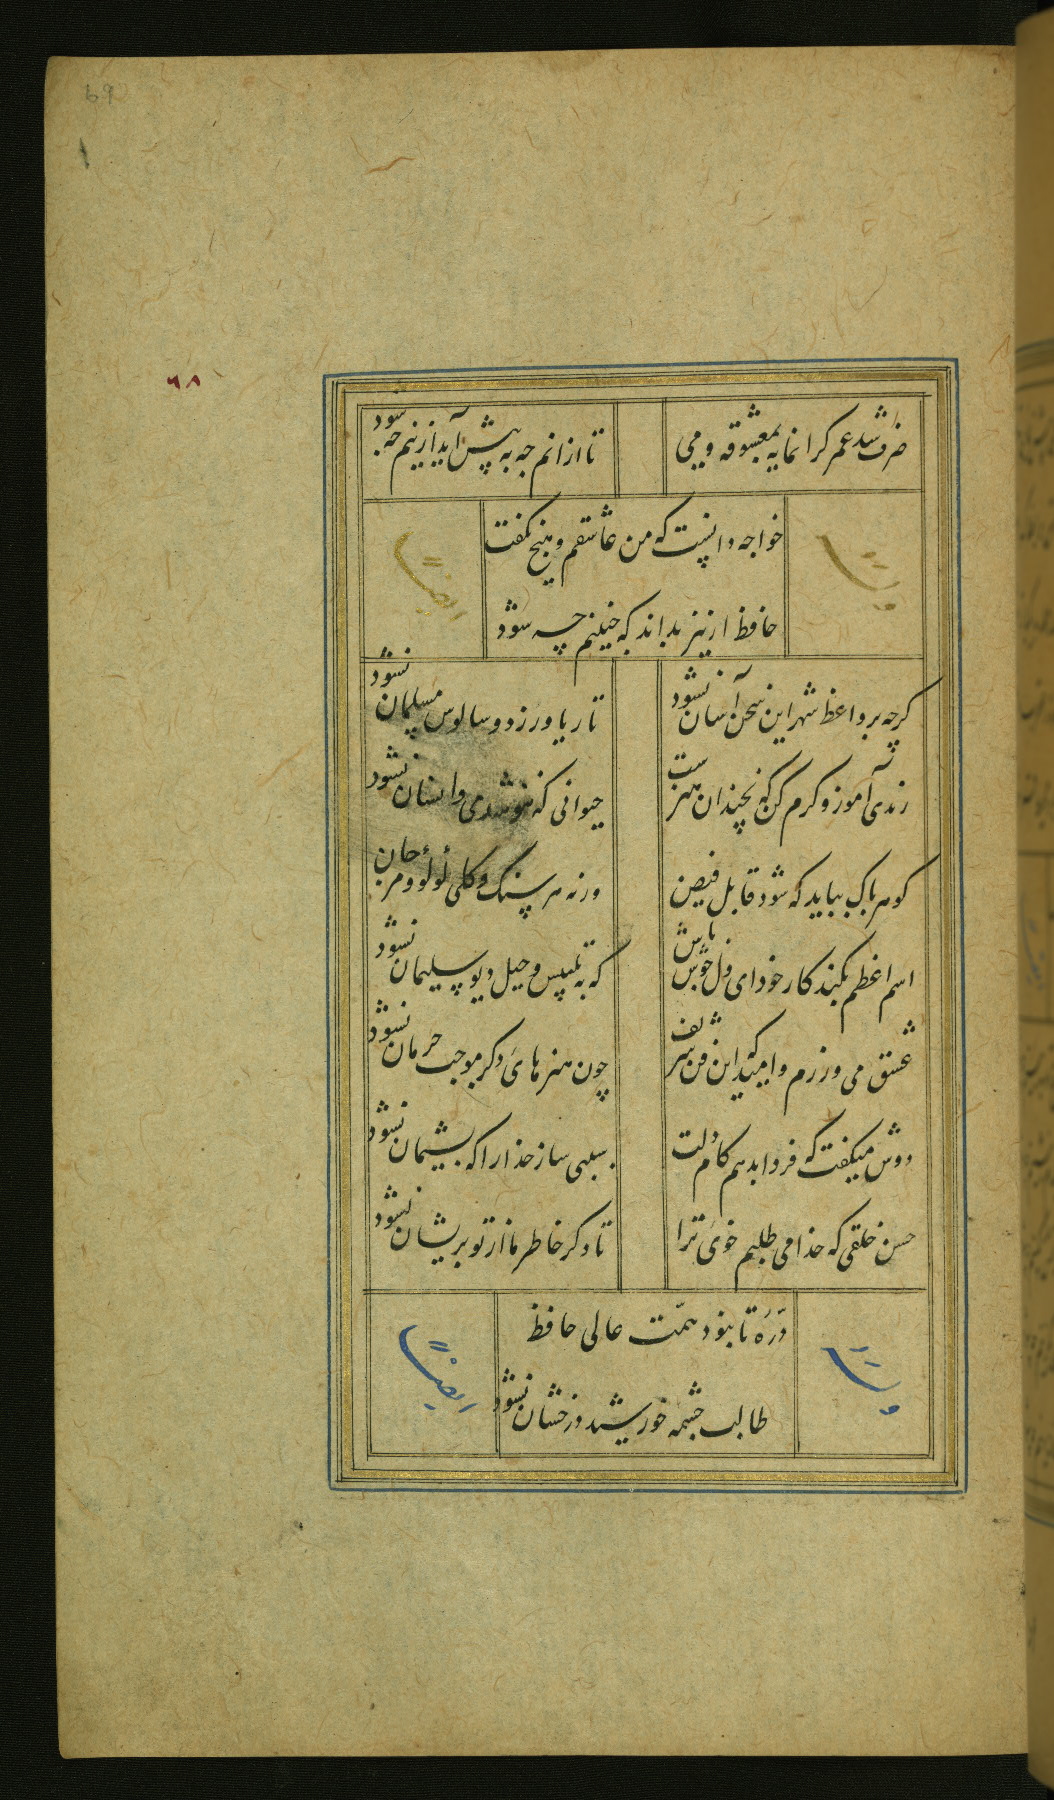 69
٦٨
صرف شد عمر کرانمایه بمعشوقه و می
تا از انم جه به پیش آید ازینم چه شود
خواجه دانست که من عاشقم و هیچ نکفت
حافظ ار نیز بداند که چنینم چه شود
وله
ایضاً
کرچه بر واعظ شهر این سخن آسان نشود
تا ریا ورزد و سالوس مسلمان نشود
رندی آموز و کرم کن که نچندان هنرست
حیوانی که ننوشد می و انسان نشود
کوهر پاک بباید که شود قابل فیض
ورنه هر سنک و کلی لؤلؤ و مرجان
اسم اعظم بکند کار خود ای دل خوش باش
که به تلبیس و حیل دیو سلیمان نشود
عشق می ورزم و امید که این فن شریف
چون هنرهای دکر موجب حرمان نشود
دوش میکفت که فردا بدهم کام دلت
سببی ساز خدارا که پشیمان نشود
حسن خلقی که خدا می طلبم خوی ترا
تا دکر خاطر ما از تو پریشان نشود
ذره تا نبود همّت عالی حافظ
طالب چشمه خورشید درخشان نشود
وله
ایضاً